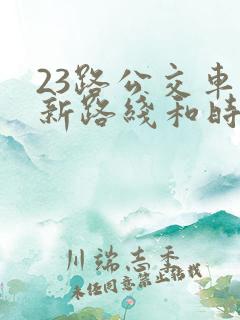 23路公交车
新路线和时
川端志季
未经同意禁止转载